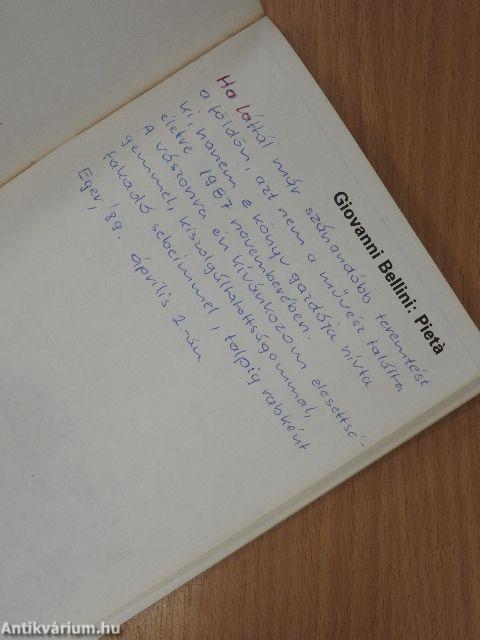 Giovanni Bellini: Pietà
Ha láttál már szánandóbb teremtést
a földön, azt nem a művész találta
ki, hanem e könyv gazdája hívta
életre 1987 novemberében.
A vászonra én kívánkozom elesettsé-
gemmel, kiszolgáltatottságommal,
fakadó sebeimmel, talpig rabként
Eger, '89. április 2-án
Antikvárium.hu